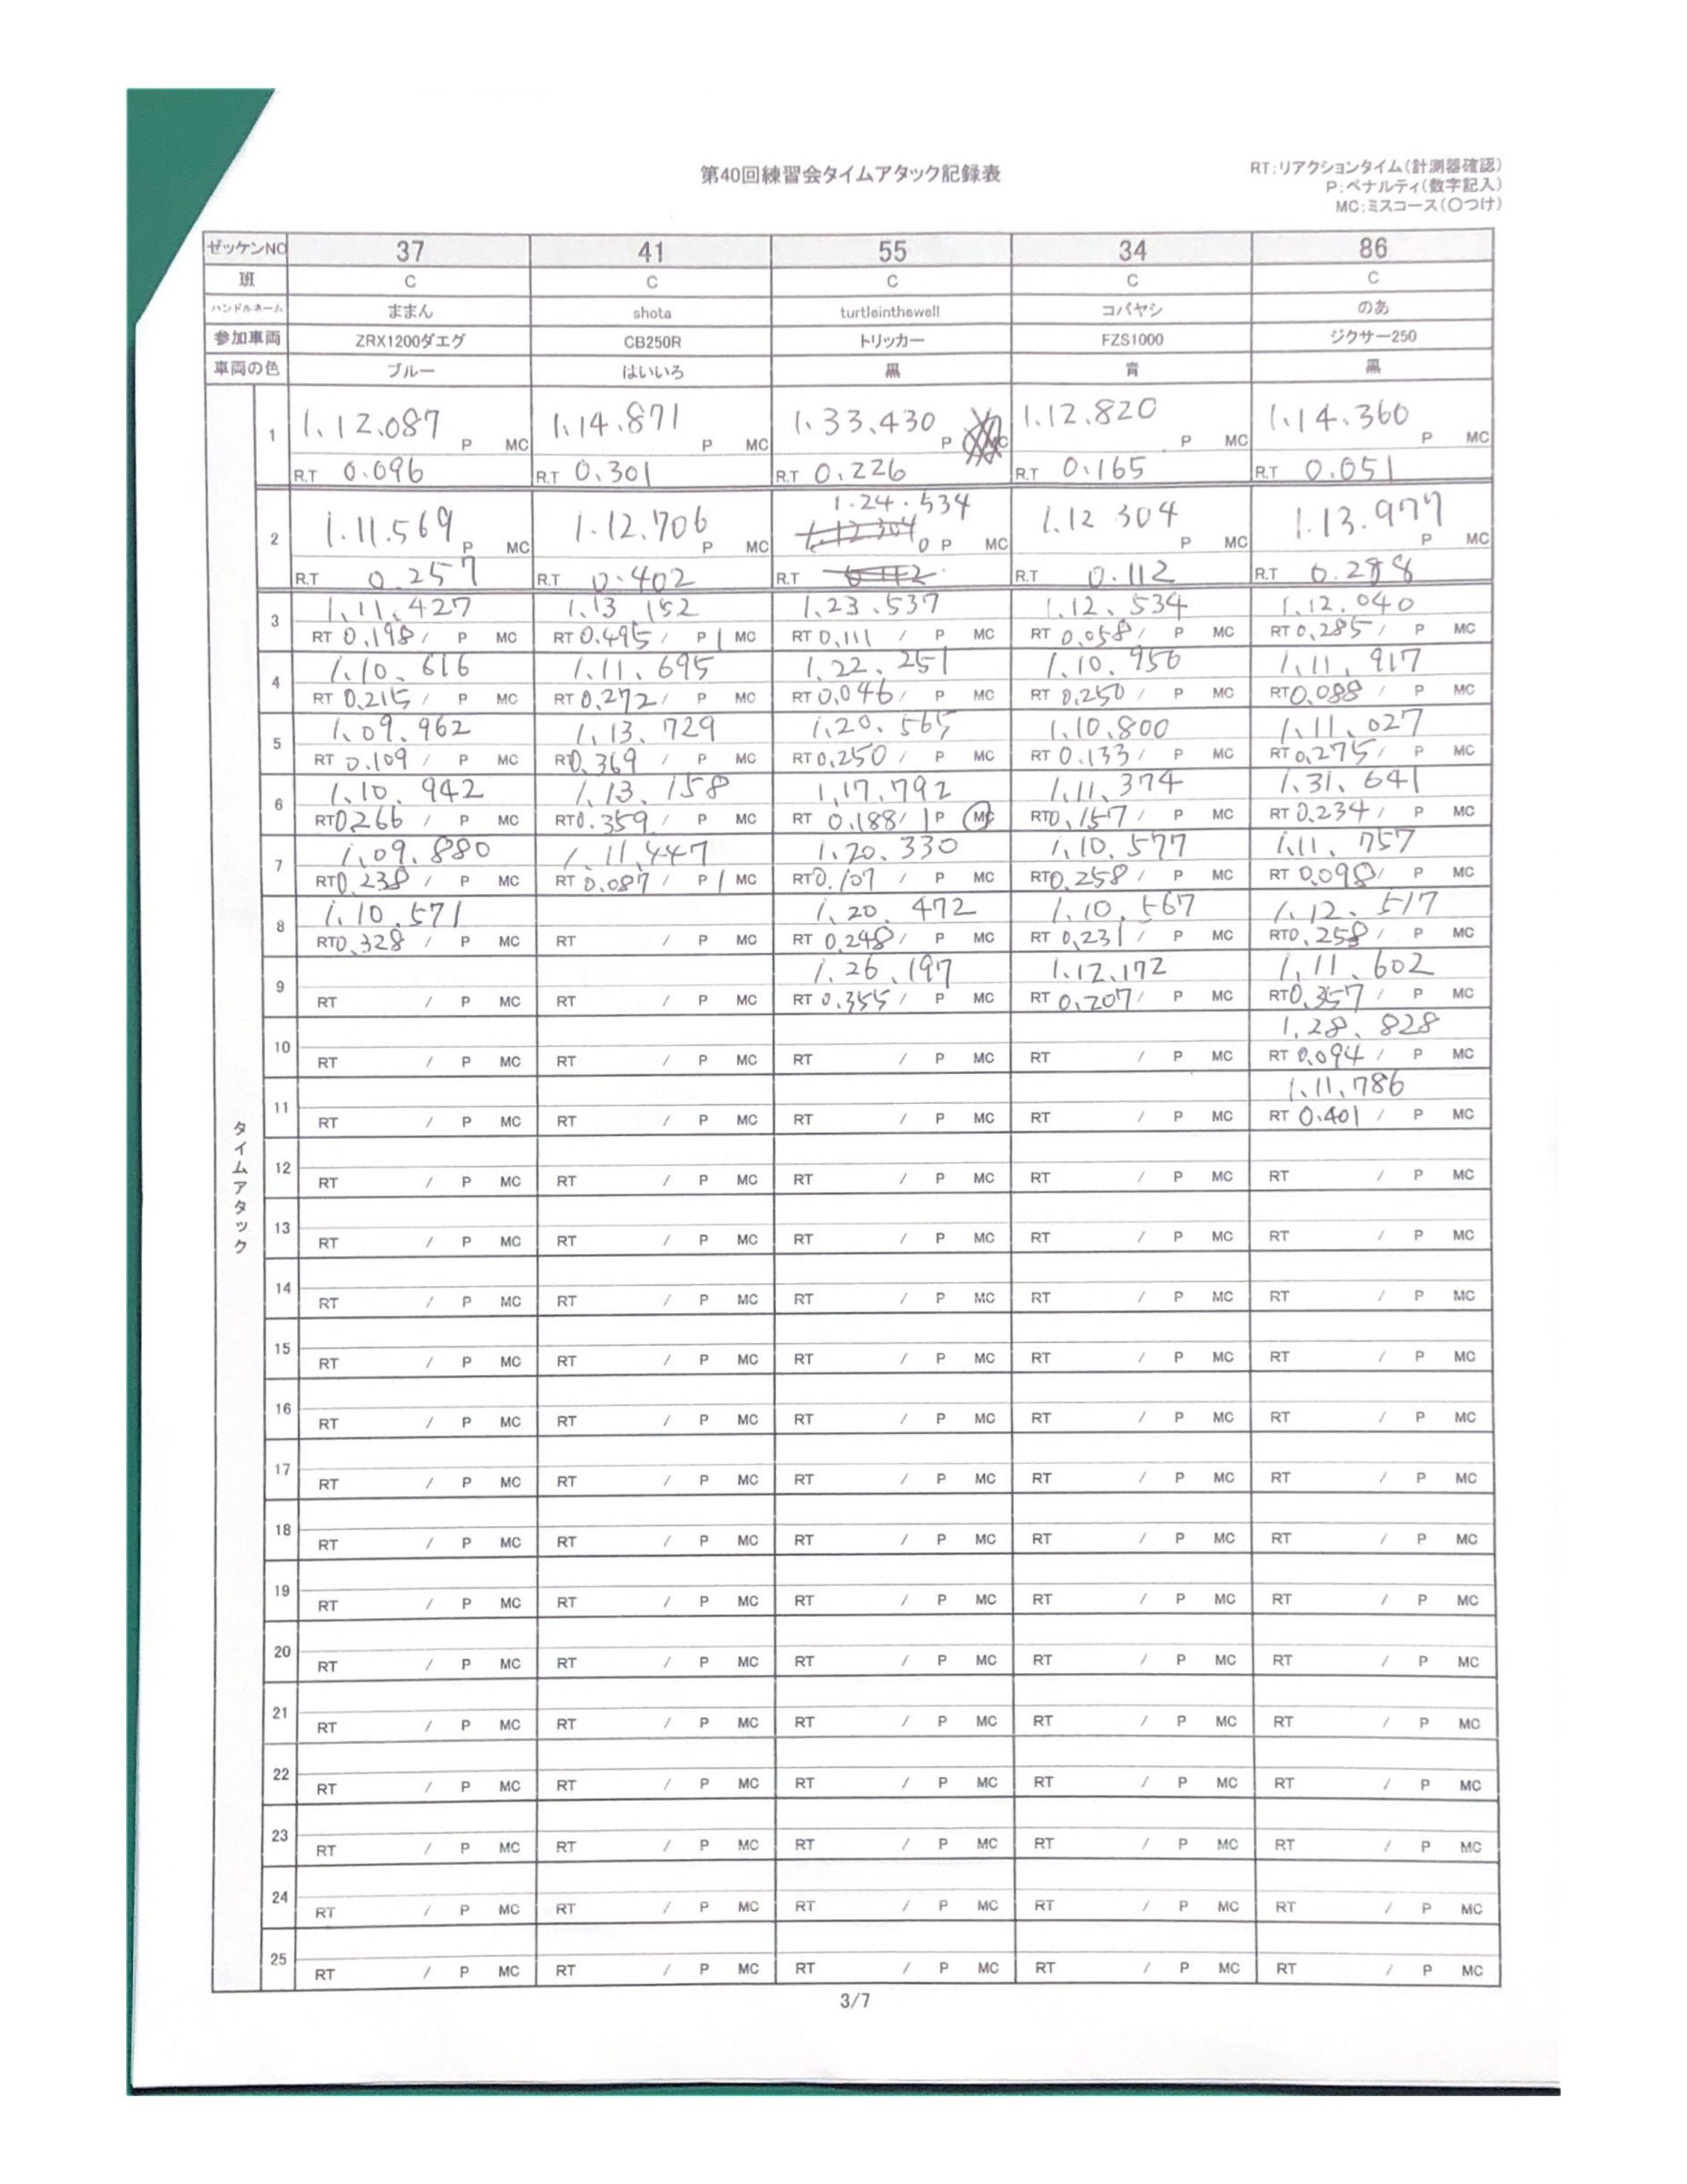 第40回練習会タイムアタック記録表
RT:リアクションタイム(計測器確認)
P:ペナルティ(数字記入)
MC:ミスコース(○つけ)
ゼッケンNO 37 41 55 34 86
班 C C C C C
ハンドルネーム ままん shota turtleinthewell コバヤシ のあ
参加車両 ZRX1200ダエグ CB250R トリッカー FZS1000 ジクサー250
車両の色 ブルー はいいろ 黒 青 黒
タイムアタック
1 1.12.087 P MC 1.14.871 P MC 1.33.430 P MC 1.12.820 P MC 1.14.360 P MC
R.T 0.096 R.T 0.301 R.T 0.226 R.T 0.165 R.T 0.051
2 1.11.569 P MC 1.12.706 P MC 1.24.534 1.12 304 0 P MC 1.12 304 P MC 1.13.977 P MC
R.T 0.257 R.T 0.402 R.T 0.112 R.T 0.112 R.T 0.288
3 1.11.427 1.13.152 1.23.537 1.12.534 1.12.040
RT 0.198 / P MC RT 0.495 / P 1 MC RT 0.111 / P MC RT 0.058 / P MC RT 0.285 / P MC
4 1.10.616 1.11.695 1.22.251 1.10.956 1.11.917
RT 0.215 / P MC RT 0.272 / P MC RT 0.046 / P MC RT 0.250 / P MC RT 0.088 / P MC
5 1.09.962 1.13.729 1.20.565 1.10.800 1.11.027
RT 0.109 / P MC RT 0.369 / P MC RT 0.250 / P MC RT 0.133 / P MC RT 0.275 / P MC
6 1.10.942 1.13.158 1.17.792 1.11.374 1.31.641
RT 0.266 / P MC RT 0.359 / P MC RT 0.188 / 1 P MC RT 0.157 / P MC RT 0.234 / P MC
7 1.09.880 1.11.447 1.20.330 1.10.577 1.11.757
RT 0.238 / P MC RT 0.087 / P 1 MC RT 0.107 / P MC RT 0.258 / P MC RT 0.098 / P MC
8 1.10.571 1.20.472 1.10.567 1.12.517
RT 0.328 / P MC RT / P MC RT 0.248 / P MC RT 0.231 / P MC RT 0.258 / P MC
9 1.26.197 1.12.172 1.11.602
RT / P MC RT / P MC RT 0.355 / P MC RT 0.207 / P MC RT 0.357 / P MC
10 1.28.828
RT / P MC RT / P MC RT / P MC RT / P MC RT 0.094 / P MC
11 1.11.786
RT / P MC RT / P MC RT / P MC RT / P MC RT 0.401 / P MC
12
RT / P MC RT / P MC RT / P MC RT / P MC RT / P MC
13
RT / P MC RT / P MC RT / P MC RT / P MC RT / P MC
14
RT / P MC RT / P MC RT / P MC RT / P MC RT / P MC
15
RT / P MC RT / P MC RT / P MC RT / P MC RT / P MC
16
RT / P MC RT / P MC RT / P MC RT / P MC RT / P MC
17
RT / P MC RT / P MC RT / P MC RT / P MC RT / P MC
18
RT / P MC RT / P MC RT / P MC RT / P MC RT / P MC
19
RT / P MC RT / P MC RT / P MC RT / P MC RT / P MC
20
RT / P MC RT / P MC RT / P MC RT / P MC RT / P MC
21
RT / P MC RT / P MC RT / P MC RT / P MC RT / P MC
22
RT / P MC RT / P MC RT / P MC RT / P MC RT / P MC
23
RT / P MC RT / P MC RT / P MC RT / P MC RT / P MC
24
RT / P MC RT / P MC RT / P MC RT / P MC RT / P MC
25
RT / P MC RT / P MC RT / P MC RT / P MC RT / P MC
3/7